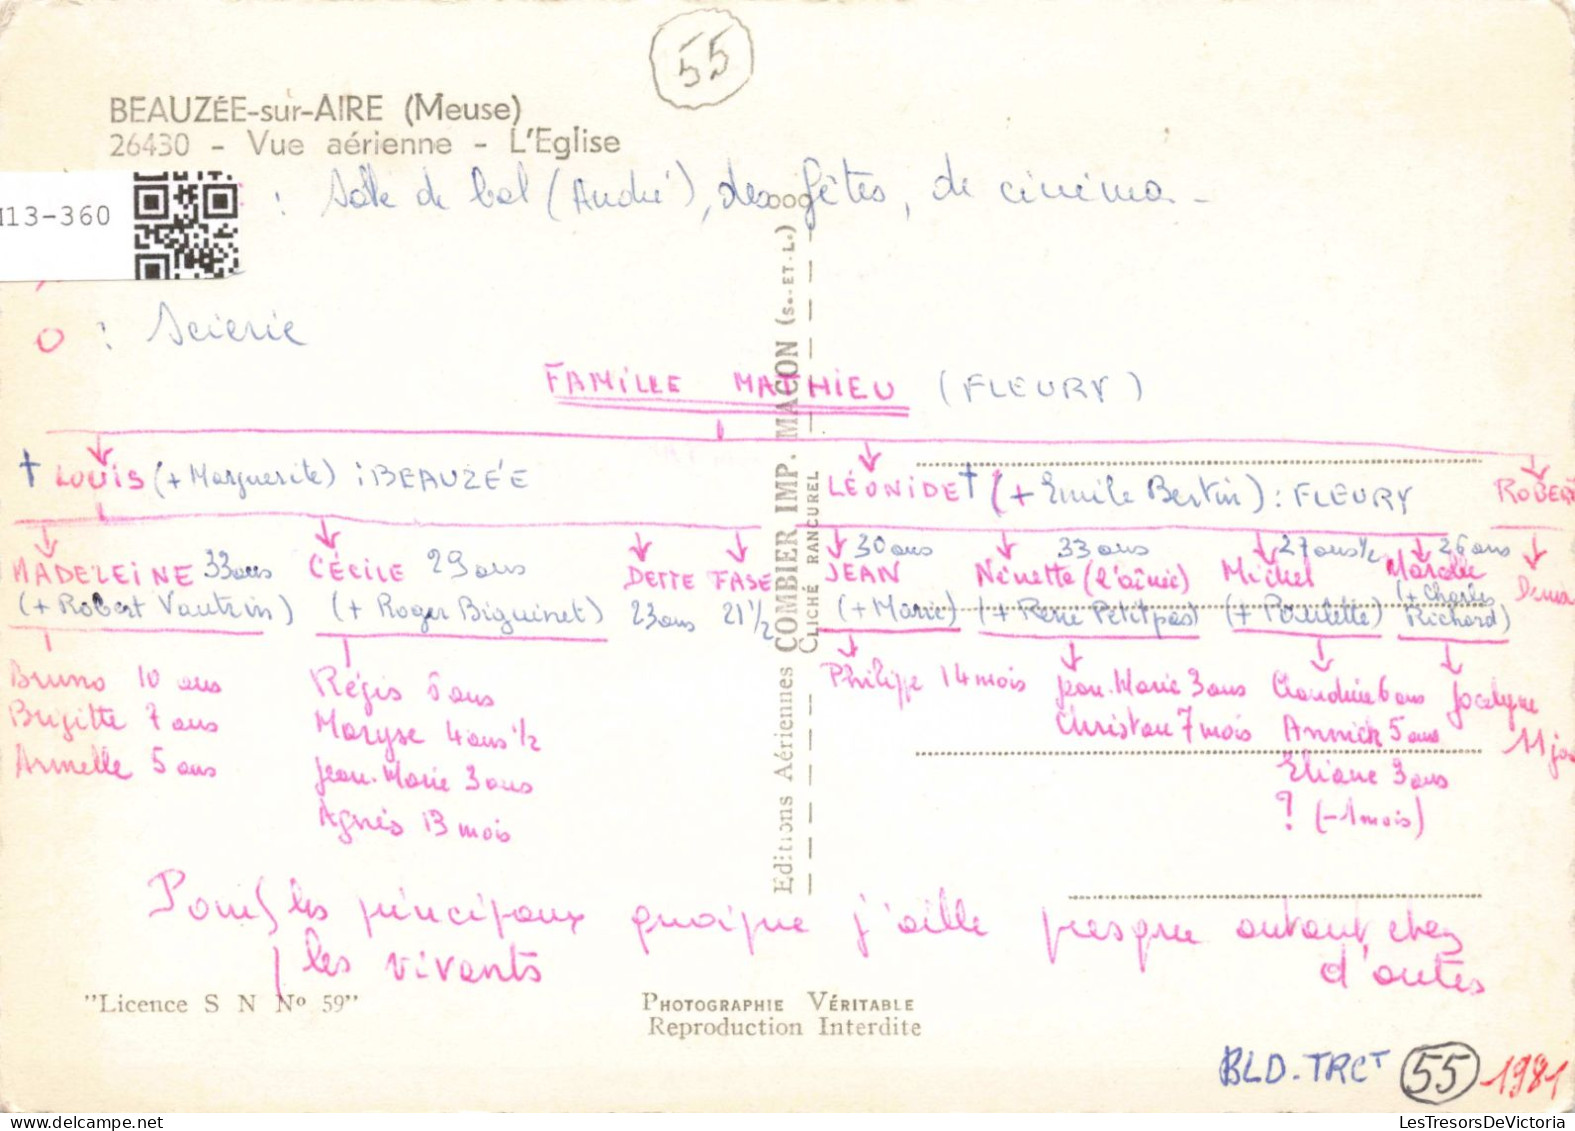 55
BEAUZÉE-sur-AIRE (Meuse)
26430 - Vue aérienne - L'Eglise
13-360
: Salle de bal (André), des fêtes, de cinéma -
O : Scierie
FAMILLE MATHIEU (FLEURY)
† LOUIS (+ Marguerite) : BEAUZÉE
LÉONIDE † (+ Emile Bertin) : FLEURY
ROBERT
MADELEINE 33 ans
(+ Robert Vautrin)
CÉCILE 29 ans
(+ Roger Biguinet)
DETTE
23 ans
FASE
21 1/2
30 ans
JEAN
(+ Marie)
33 ans
Ninette (l'aînée)
(+ René Petitpas)
27 ans 1/2
Michel
(+ Paulette)
26 ans
(+ Charles
Richard)
Bruno 10 ans
Brigitte 7 ans
Armelle 5 ans
Régis 6 ans
Maryse 4 ans 1/2
Jean-Marie 3 ans
Agnès 13 mois
Philippe 14 mois
Jean-Marie 3 ans
Christian 7 mois
Claudine 6 ans
Annick 5 ans
Eliane 3 ans
? (-1 mois)
Jocelyne
11 jo
les principaux quoique j'aille presque autant chez
les vivants d'autres
Editions Aériennes COMBIER IMP. MACON (S.-ET-L.)
CLICHÉ RANCUREL
"Licence S N Nº 59"
PHOTOGRAPHIE VÉRITABLE
Reproduction Interdite
BLD. TRCT 55 1981
LesTresorsDeVictoria